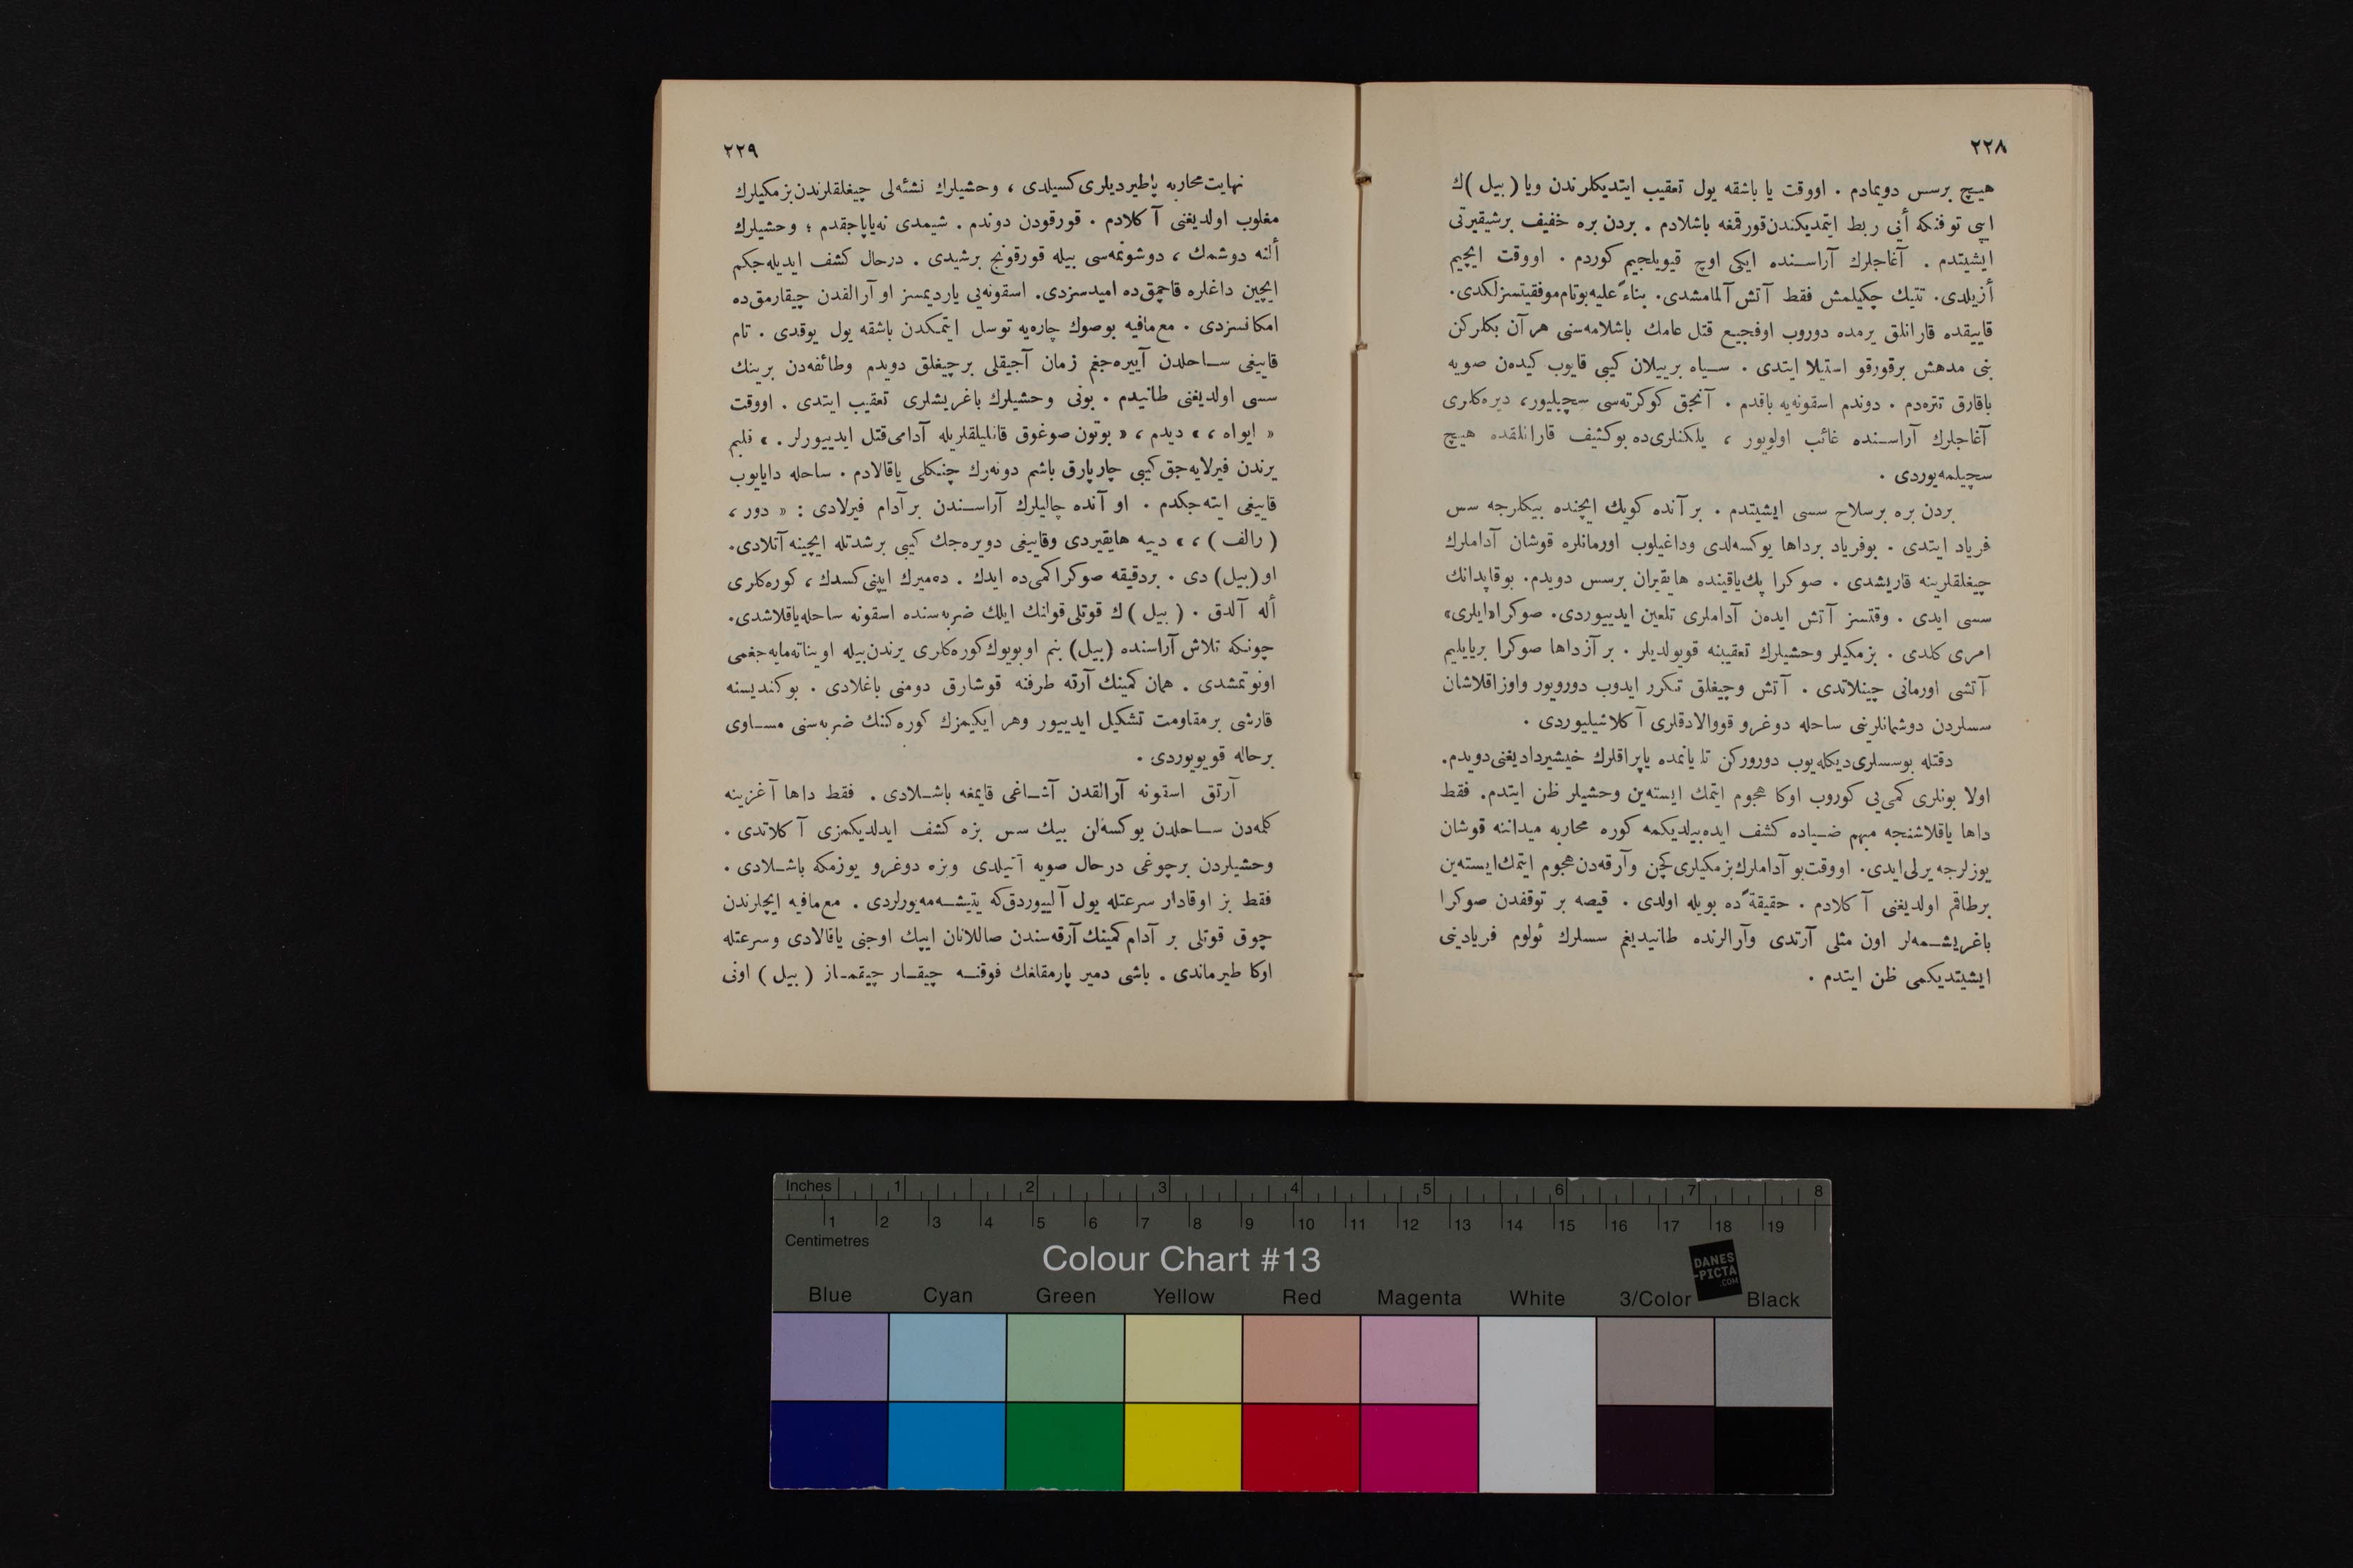 ٢٢٨
هیچ برسس دویمادم . اووقت یا باشقه یول تعقیب ایتدیکلرندن ویا ( بیل ) ك
ایپی توفنکه أیی ربط ایتمدیکندن قورقمغه باشلادم . بردن بره خفیف برشیقیرتی
ایشیتدم . آغاجلرك آراسنده ایکی اوچ قیویلجیم کوردم . اووقت ایچیم
أزیلدی . تتیك چکیلمش فقط آتش آلمامشدی . بناءً علیه بوتام موفقیتسزلکدی .
قاییقده قارانلق یرمده دوروب اوفجیع قتل عامك باشلامه‌سنی هر آن بکلرکن
بنی مدهش برقورقو استیلا ایتدی . سیاه بر ییلان کیبی قایوب کیده‌ن صویه
باقارق تتره‌دم . دوندم اسقونه‌یه باقدم . آنجق کوکرته‌سی سچیلیور ، دیره‌کلری
آغاجلرك آراسنده غائب اولویور ، یلکنلری‌ده بوکثیف قارانلقده هیچ
سچیلمه‌یوردی .
بردن بره برسلاح سسی ایشیتدم . بر آنده کویك ایچنده بیکلرجه سس
فریاد ایتدی . بوفریاد برداها یوکسه‌لدی وداغیلوب اورمانلره قوشان آداملرك
چیغلقلرینه قاریشدی . صوکرا پك یاقینده هایقیران برسس دویدم . بوقاپدانك
سسی ایدی . وقتسز آتش ایده‌ن آداملری تلعین ایدییوردی . صوکرا «ایلری»
امری کلدی . بزمکیلر وحشیلرك تعقیبنه قویولدیلر . بر آز داها صوکرا بریایلیم
آتشی اورمانی چینلاتدی . آتش وچیغلق تکرر ایدوب دورویور واوزاقلاشان
سسلردن دوشمانلرینی ساحله دوغرو قووالادقلری آکلاشیلیوردی .
دقتله بوسسلری دیکله‌یوب دورورکن تا یانمده یاپراقلرك خیشیردادیغنی دویدم .
اولا بونلری کمی‌یی کوروب اوکا هجوم ایتمك ایسته‌ین وحشیلر ظن ایتدم . فقط
داها یاقلاشنجه مبهم ضیاده کشف ایده‌بیلدیکمه کوره محاربه میداننه قوشان
یوزلرجه یرلی ایدی . اووقت بو آداملرك بزمکیلری کچن وآرقه‌دن هجوم ایتمك ایسته‌ین
برطاقم اولدیغنی آکلادم . حقیقةً ده بویله اولدی . قیصه بر توقفدن صوکرا
باغریشمه‌لر اون مثلی آرتدی وآرالرنده طانیدیغم سسلرك ئولوم فریادینی
ایشیتدیکمی ظن ایتدم .
٢٢٩
نهایت محاربه پاطیردیلری کسیلدی ، وحشیلرك نشئه‌لی چیغلقلرندن بزمکیلرك
مغلوب اولدیغنی آکلادم . قورقودن دوندم . شیمدی نه‌یاپاجقدم ؛ وحشیلرك
ألنه دوشمك ، دوشونمه‌سی بیله قورقونج برشیدی . درحال کشف ایدیله‌جکم
ایچین داغلره قاچمق‌ده امیدسزدی . اسقونه‌یی یاردیمسز او آرالقدن چیقارمق‌ده
امکانسزدی . مع‌مافیه بوصوك چاره‌یه توسل ایتمکدن باشقه یول یوقدی . تام
قاییغی ساحلدن آییره‌جغم زمان آجیقلی برچیغلق دویدم وطائفه‌دن برینك
سسی اولدیغنی طانیدم . بونی وحشیلرك باغریشلری تعقیب ایتدی . اووقت
« ایواه ، » دیدم ، « بوتون صوغوق قانلیلقلریله آدامی قتل ایدییورلر . » قلبم
یرندن فیرلایه‌جق کیبی چارپارق باشم دونه‌رك چنکلی یاقالادم . ساحله دایایوب
قاییغی ایته‌جکدم . او آنده چالیلرك آراسندن بر آدام فیرلادی : « دور ،
( رالف ) ، » دییه هایقیردی وقاییغی دویره‌جك کیبی برشدتله ایچینه آتلادی .
او (بیل) دی . بردقیقه صوکرا کمی‌ده ایدك . ده‌میرك ایپنی کسدك ، کوره‌کلری
أله آلدق . ( بیل ) ك قوتلی قولنك ایلك ضربه‌سنده اسقونه ساحله یاقلاشدی .
چونکه تلاش آراسنده (بیل) بنم اوبویوك کوره‌کلری یرندن بیله اوینا‌ته‌مایه‌جغمی
اونوتمشدی . همان کمینك آرته طرفنه قوشارق دومنی باغلادی . بو کندیسنه
قارشی بر مقاومت تشکیل ایدییور وهر ایکیمزك کوره‌کنك ضربه‌سنی مساوی
برحاله قویویوردی .
آرتق اسقونه آرالقدن آشاغی قایمغه باشلادی . فقط داها آغزینه
کلمه‌دن ساحلدن یوکسه‌لن بیك سس بزه کشف ایدلدیکمزی آکلاتدی .
وحشیلردن برچوغی درحال صویه آتیلدی وبزه دوغرو یوزمکه باشلادی .
فقط بز اوقادار سرعتله یول آلییوردق که یتیشه‌مه‌یورلردی . مع‌مافیه ایچلرندن
چوق قوتلی بر آدام کمینك آرقه‌سندن صاللانان ایپك اوجنی یاقالادی وسرعتله
اوکا طیرماندی . باشی دمیر پارمقلغك فوقنه چیقار چیقماز ( بیل ) اونی
Inches 1 2 3 4 5 6 7 8
1 2 3 4 5 6 7 8 9 10 11 12 13 14 15 16 17 18 19
Centimetres
Colour Chart #13
DANES
-PICTA
.COM
Blue Cyan Green Yellow Red Magenta White 3/Color Black